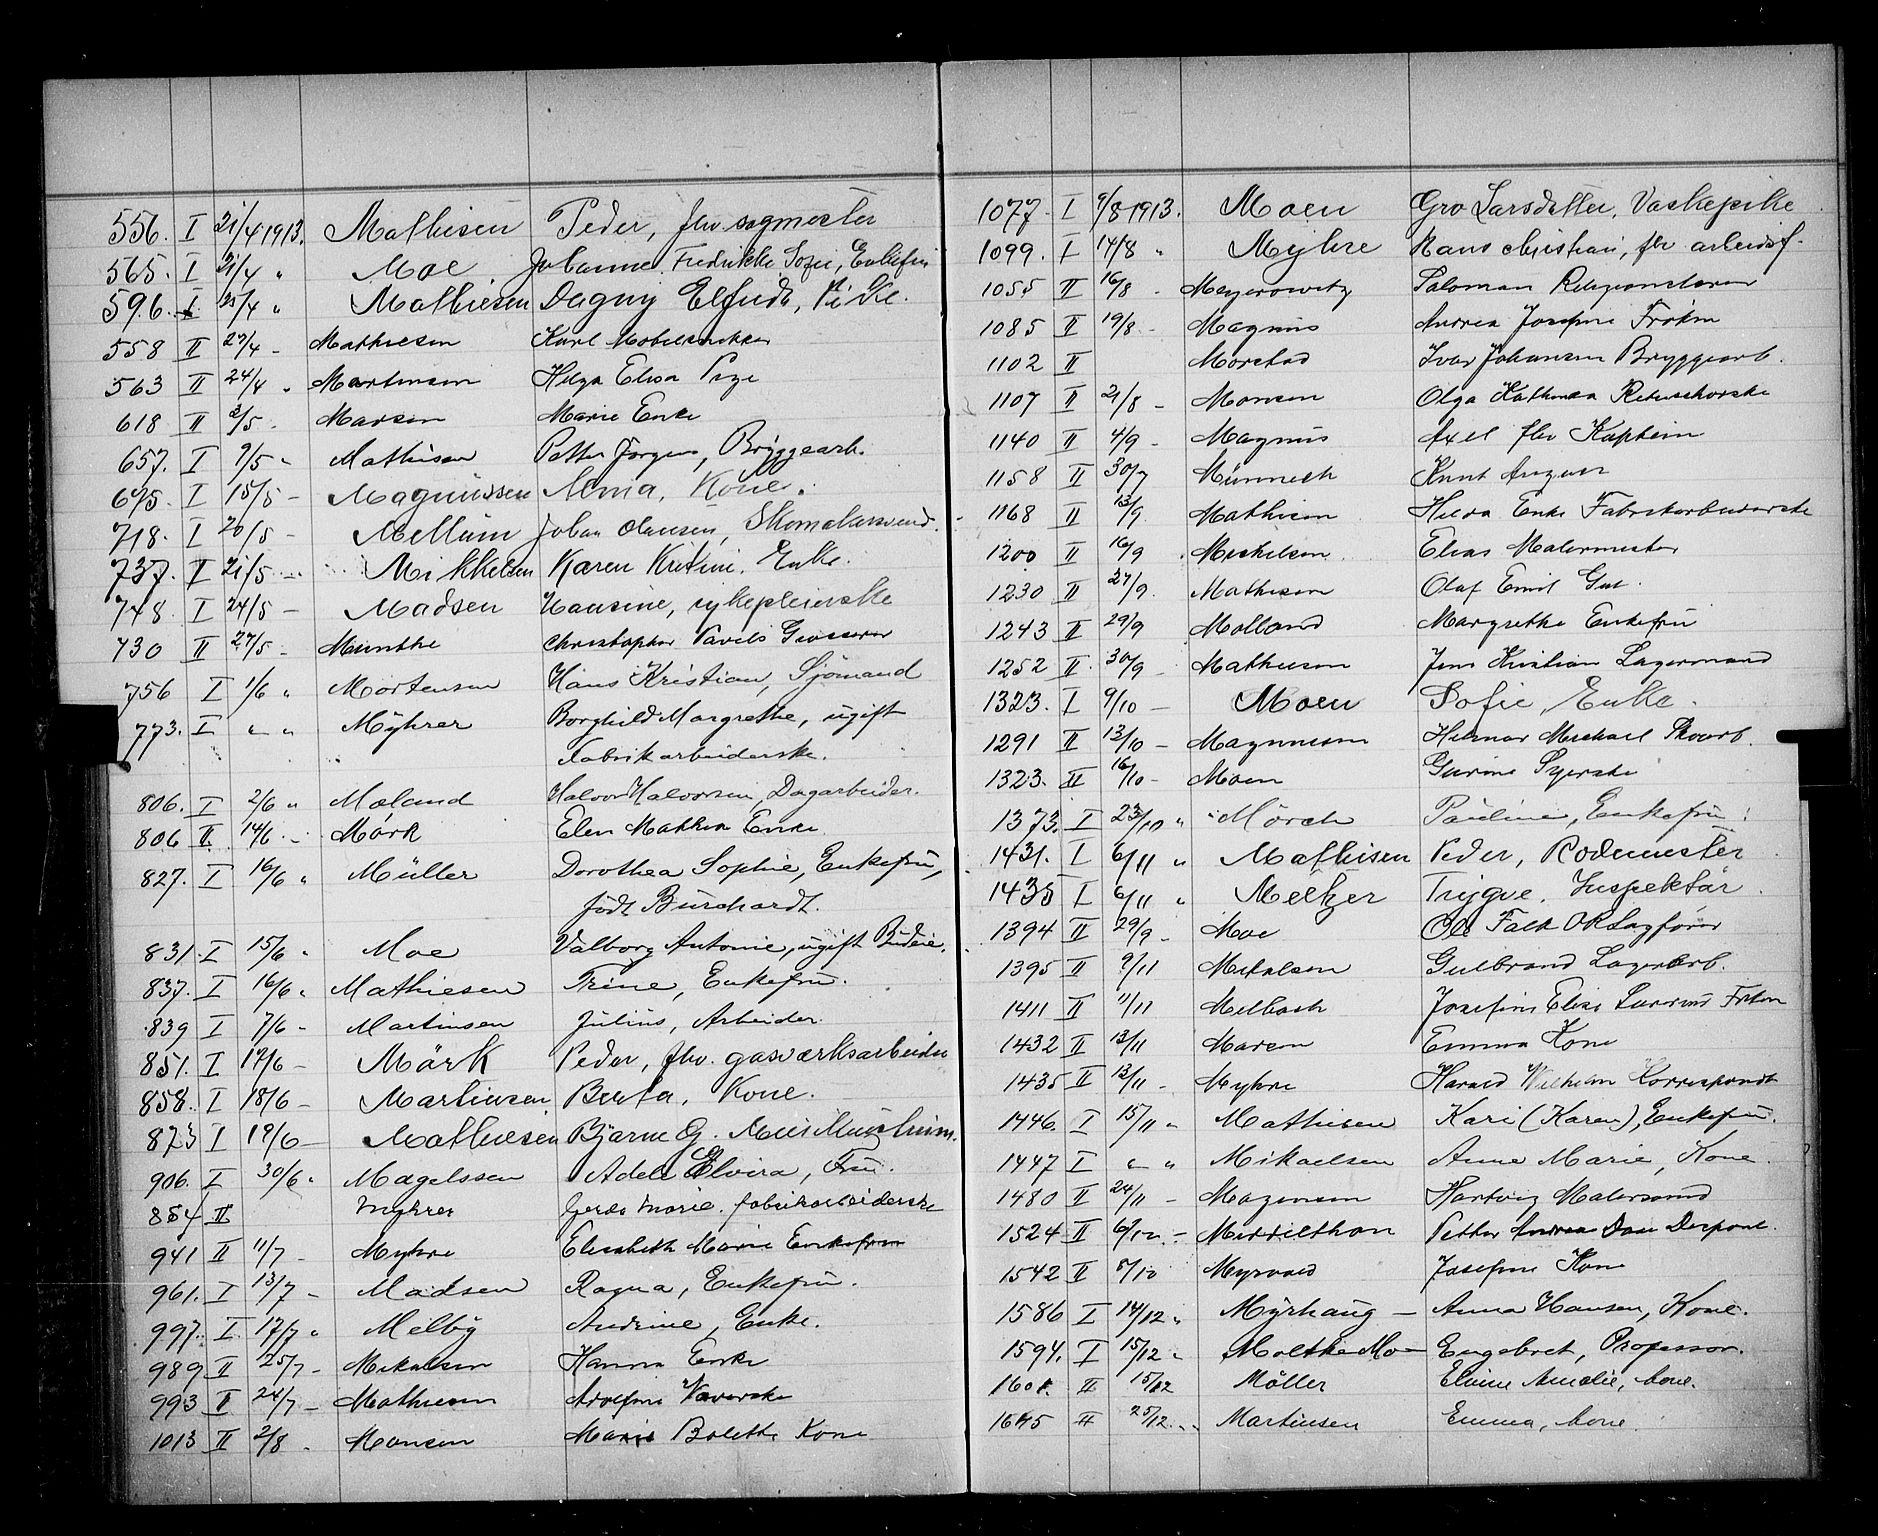 556. I 21/4 1913. Mathisen Peder, fhv. sagmester
565. I 21/4 " Moe Johanne Fredrikke Sofie, Enkefru
596. I 21/4 " Mathiesen Dagny Elfrida, Pike.
558 II 27/4 - Mathiesen Karl Møbelsnekker
563 II 24/4 " Martinsen Helga Elisa Pige
618 II 2/5 - Marsen Marie Enke
657. I 9/5 " Mathisen Petter Jørgen, Bryggearb.
675. I 15/5 - Magnussen Alma, Kone.
718. I 20/5 - Mellum Johan Hansen, Skomakersvend.
737. I 21/5 - Mikkelsen Karen Kristine, Enke.
748. I 24/5 - Madsen Hansine, sykepleierske
730 II 27/5 - Munthe Christopher Pavels Grosserer
756 I 1/6 " Mortensen Hans Kristian, Sjømand
773. I " " Myhrer Borghild Margrethe, ugift
Fabrikarbeiderske.
806. I 2/6 " Mæland Halvor Halvorsen, Dagarbeider.
806 II 14/6 - Mørk Elen Mathea Enke
827. I 16/6 " Müller Dorothea Sophie, Enkefru,
født Burchardt.
831. I 15/6 " Moe Valborg Antonie, ugift Budeie.
837. I 16/6 " Mathiesen Trine, Enkefru.
839 I 7/6 - Martinsen Julius, Arbeider.
851. I 17/6 - Mörk Peder, fhv. gasværksarbeider
858. I 18/6 - Martinsen Berta, Kone.
873 I 19/6 - Mathiesen Bjarne
906. I 30/6 " Magelssen Adele Elvira, Fru.
854 II Myhrer Gerda Marie. fabrikarbeiderske
941 II 11/7 - Myhre Elisabeth Marie Enkefru
961. I 13/7 - Madsen Ragna, Enkefru.
997. I 17/7 " Melby Andrine, Enke.
989 II 25/7 - Mikalsen Hanna Enke
993 II 24/7 - Mathiesen Adolfine Væverske
1013 II 2/8 - Monsen Marie Bolette Kone
1077. I 9/8 1913. Moen Gro Larsdatter, Vaskepike
1099. I 14/8 " Myhre Hans Christian, fhv. arbeidsf.
1055 II 16/8 - Meyerowitz Saloman Religionslærer
1085 II 19/8 - Magnus Andrea Josefine Frøken
1102 II Morstad Ivar Johansen Bryggearb.
1107 II 21/8 - Monsen Olga Kathinka
1140 II 4/9 - Magnus Axel fhv Kaptein
1158 II 30/7 Münnich Knut
1168 II 13/9 Mathisen Hilda Enke Fabrikarbeiderske
1200 II 16/9 Mickelsen Elias Malermester
1230 II 27/9. Mathisen Olaf Emil Gut.
1243 II 29/9 Molland Margrethe Enkefru
1252 II 30/9 - Mathiesen Jens Kristian Lagermand
1323. I 9/10 - Moen Sofie, Enke.
1291 II 13/10 - Magnussen Hilmar Michael Skoarb.
1323. II 16/10 - Moen Gurine Syerske
1373. I 23/10 " Mörch Pauline, Enkefru.
1431. I 6/11 " Mathisen Peder, Rodemester
1435 I 6/11 " Meltzer Trygve, Inspektør.
1394 II 29/9 - Moe Ole Falk ORSagfører
1395 II 9/11 Mikalsen Gulbrand Lagerarb.
1411 II 11/11 Melbach Josefine Elise Frøken
1432 II 13/11 Maren Emma Kone
1435 II 13/11 - Myhre Harald Wilhelm Korrespondt
1446. I 15/11 " Mathisen Kari (Karen), Enkefru.
1447 I " " Mikaelsen Anne Marie, Kone.
1480 II 24/11 - Magensen Hartvig Malersvend
1524 II 6/12 - Middelthon Petter Andrea
1542 II 8/10 Myrvold Josefine Kone
1586 I 14/12 " Myrhaug - Anna Hansen, Kone.
1594. I 15/12 " Moltke Mo - Engebret, Professor.
1601. II 15/12 Möller Elvine Amalie, kone.
1645 II 25/12. " Martinsen Emma, kone.